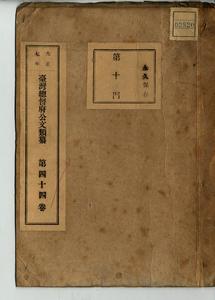 大正
七年
臺灣總督府公文類纂
第四十四卷
第十門
永久保存